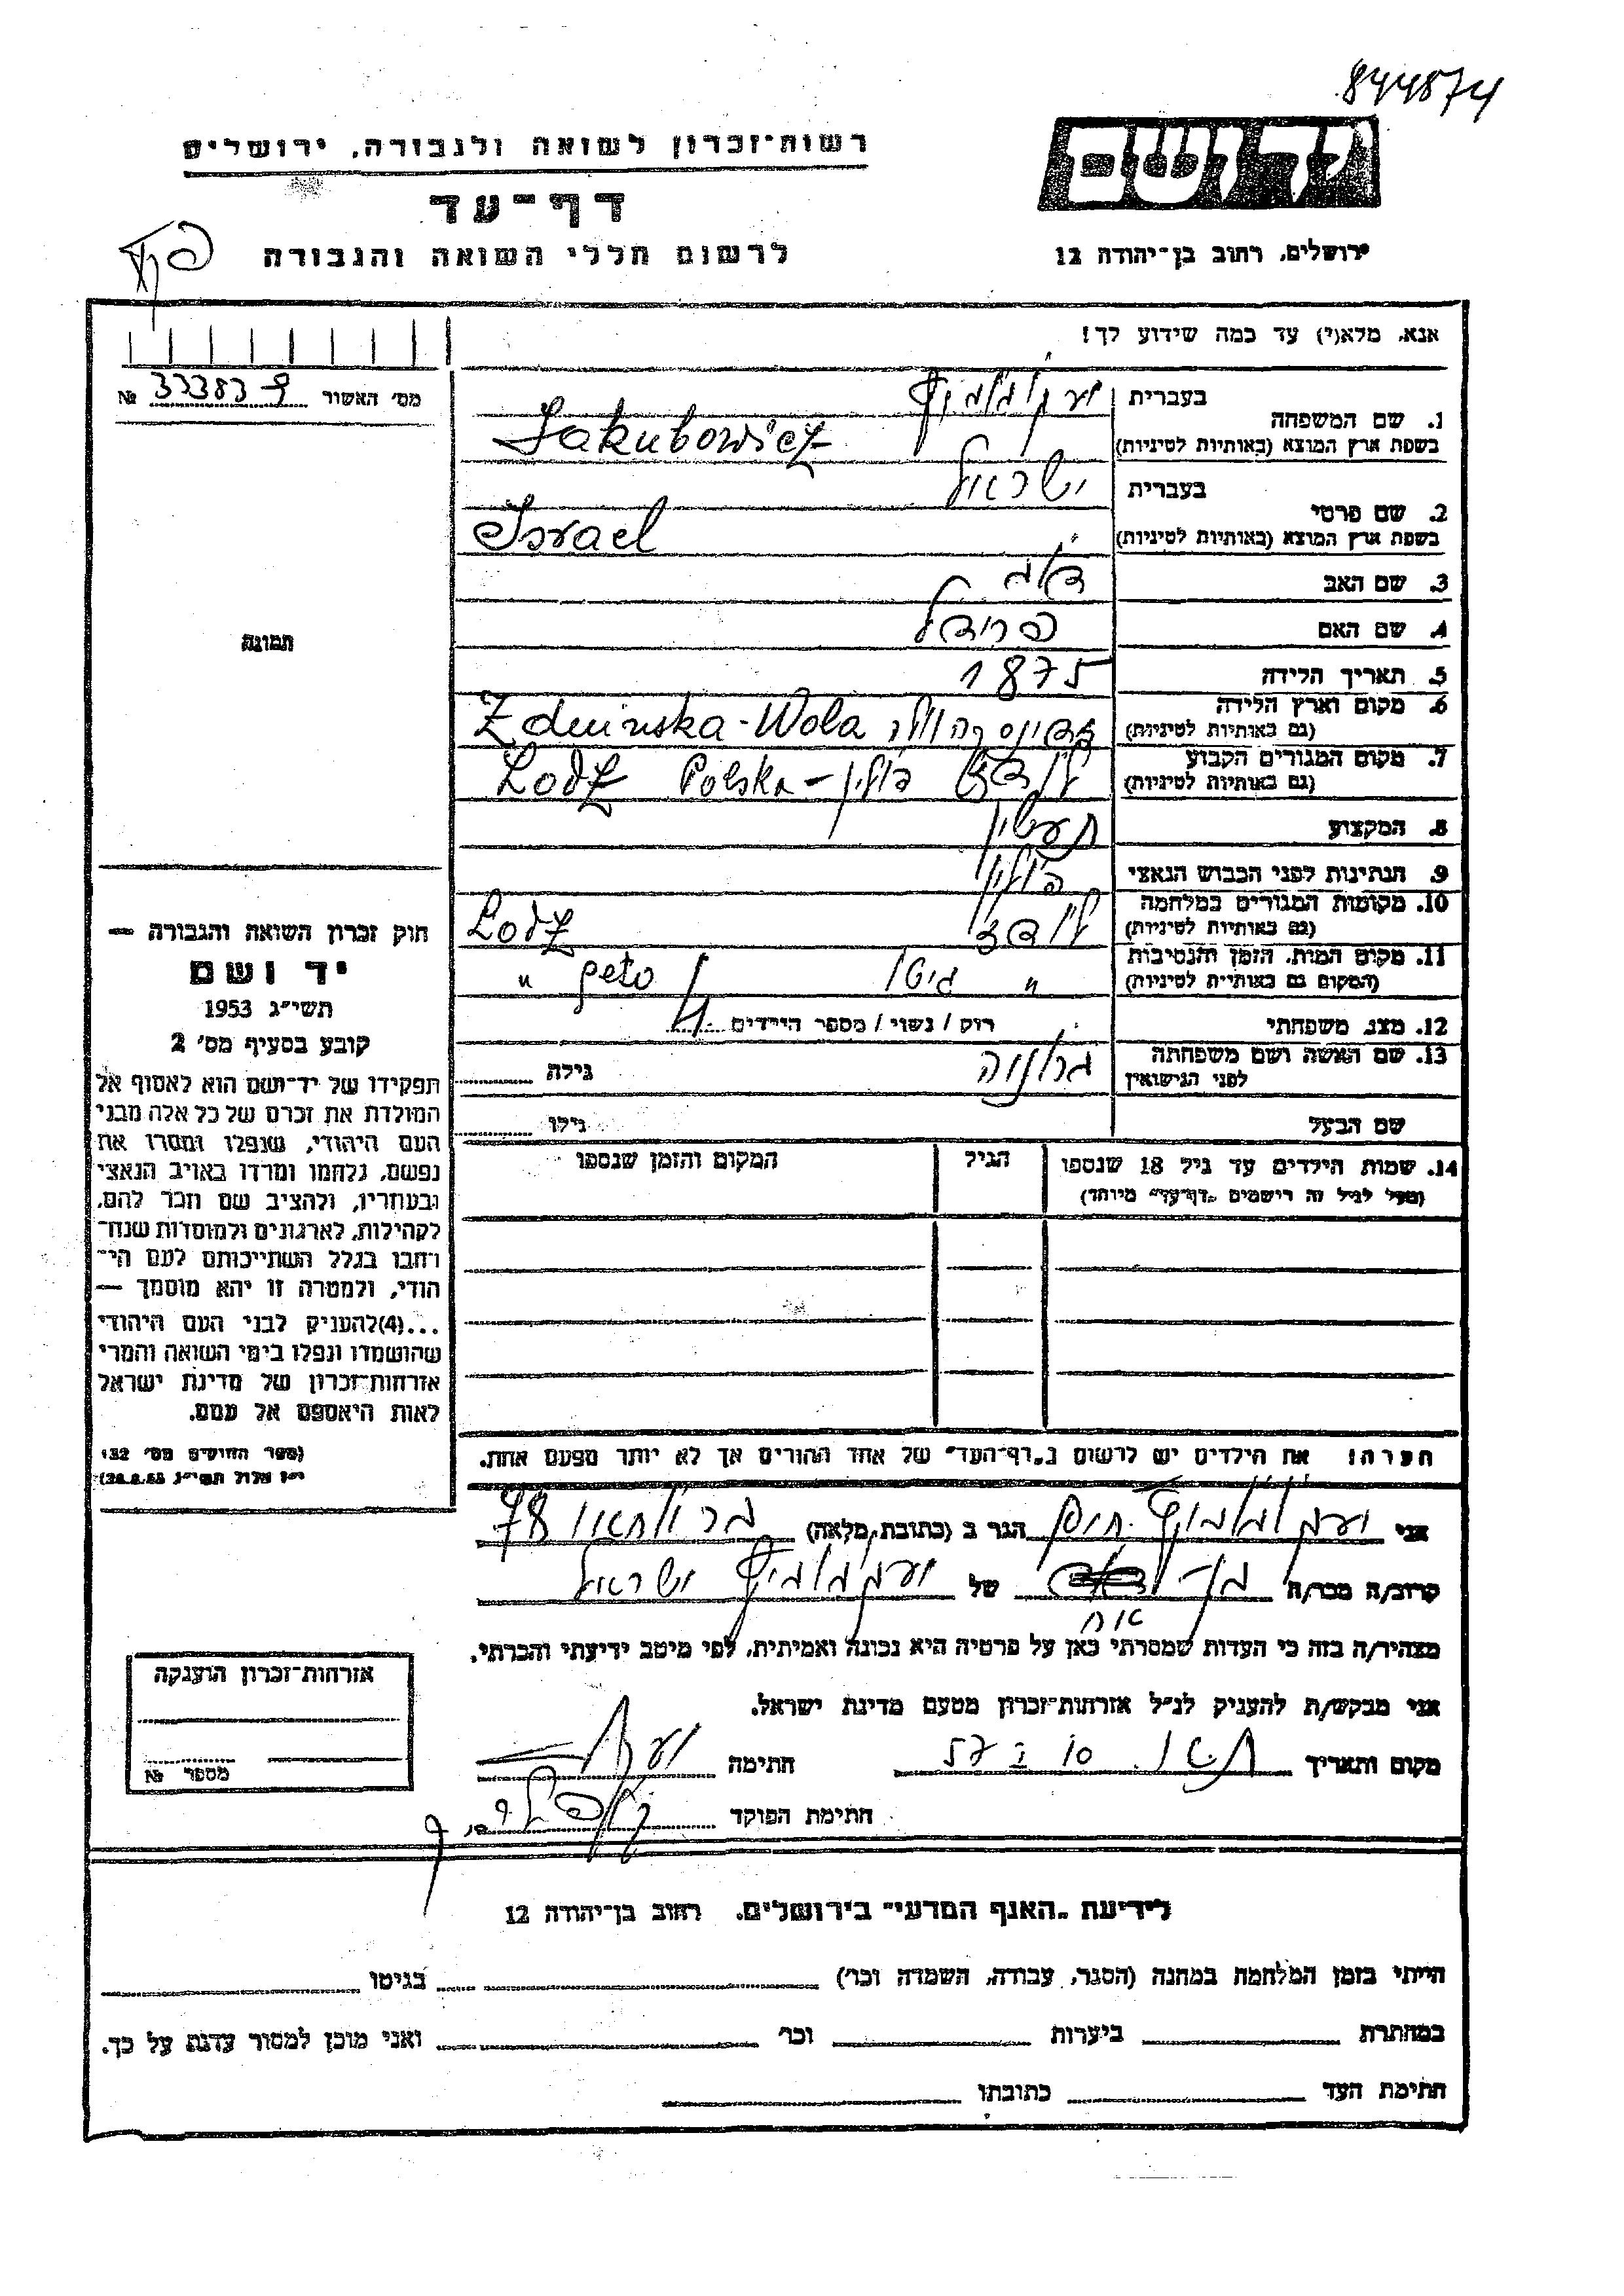 844874
רשות־זכרון לשואה ולגבורה, ירושלים
דף־עד
לרשום חללי השואה והגבורה
ירושלים, רחוב בן־יהודה 12
אנא, מלא(י) עד כמה שידוע לך!
מס׳ האשור № 33383
1. שם המשפחה
בעברית יעקובוביץ
בשפת ארץ המוצא (באותיות לטיניות) Jakubowicz
2. שם פרטי
בעברית ישראל
בשפת ארץ המוצא (באותיות לטיניות) Israel
3. שם האב דוב
4. שם האם פריידל
5. תאריך הלידה 1875
6. מקום וארץ הלידה Zduinska-Wola
(גם באותיות לטיניות)
7. מקום המגורים הקבוע לודז פולין – Lodz Polska
(גם באותיות לטיניות)
8. המקצוע תעשין
9. הנתינות לפני הכבוש הנאצי פולין
10. מקומות המגורים במלחמה לודז Lodz
(גם באותיות לטיניות)
11. מקום המות, הזמן והנסיבות " גיטו geto "
(המקום גם באותיות לטיניות)
12. מצב משפחתי רוק / נשוי / מספר הילדים 4
13. שם האשה ושם משפחתה
לפני הנישואין גילה
שם הבעל גילו
14. שמות הילדים עד גיל 18 שנספו הגיל המקום והזמן שנספו
(מעל לגיל זה רישמים „דף־עד״ מיוחד)
הערה! את הילדים יש לרשום ב„דף־העד״ של אחד ההורים אך לא יותר מפעם אחת.
תמונה
חוק זכרון השואה והגבורה —
יד ושם
תשי״ג 1953
קובע בסעיף מס׳ 2
תפקידו של יד־ושם הוא לאסוף אל
המולדת את זכרם של כל אלה מבני
העם היהודי, שנפלו ומסרו את
נפשם, נלחמו ומרדו באויב הנאצי
ובעוזריו, ולהציב שם וזכר להם,
לקהילות, לארגונים ולמוסדות שנח־
רבו בגלל השתייכותם לעם הי־
הודי, ולמטרה זו יהא מוסמך —
...(4)להעניק לבני העם היהודי
שהושמדו ונפלו בימי השואה והמרי
אזרחות־זכרון של מדינת ישראל
לאות היאספם אל עמם.
(ספר החוקים מס׳ 132
י״ז אלול תשי״ג 28.8.53)
אני יעקובוביץ חיים הגר ב (כתובת מלאה) 78
קרוב/ה מכר/ה בן אח של יעקובוביץ ישראל
מצהיר/ה בזה כי העדות שמסרתי כאן על פרטיה היא נכונה ואמיתית, לפי מיטב ידיעתי והכרתי.
אני מבקש/ת להעניק לנ״ל אזרחות־זכרון מטעם מדינת ישראל.
מקום ותאריך חתימה
חתימת הפוקד
אזרחות־זכרון הוענקה
מספר №
לידיעת „האגף המדעי״ בירושלים, רחוב בן־יהודה 12
הייתי בזמן המלחמה במחנה (הסגר, עבודה, השמדה וכו׳) בגיטו
במחתרת ביערות וכו׳ ואני מוכן למסור עדות על כך.
חתימת העד כתובתו